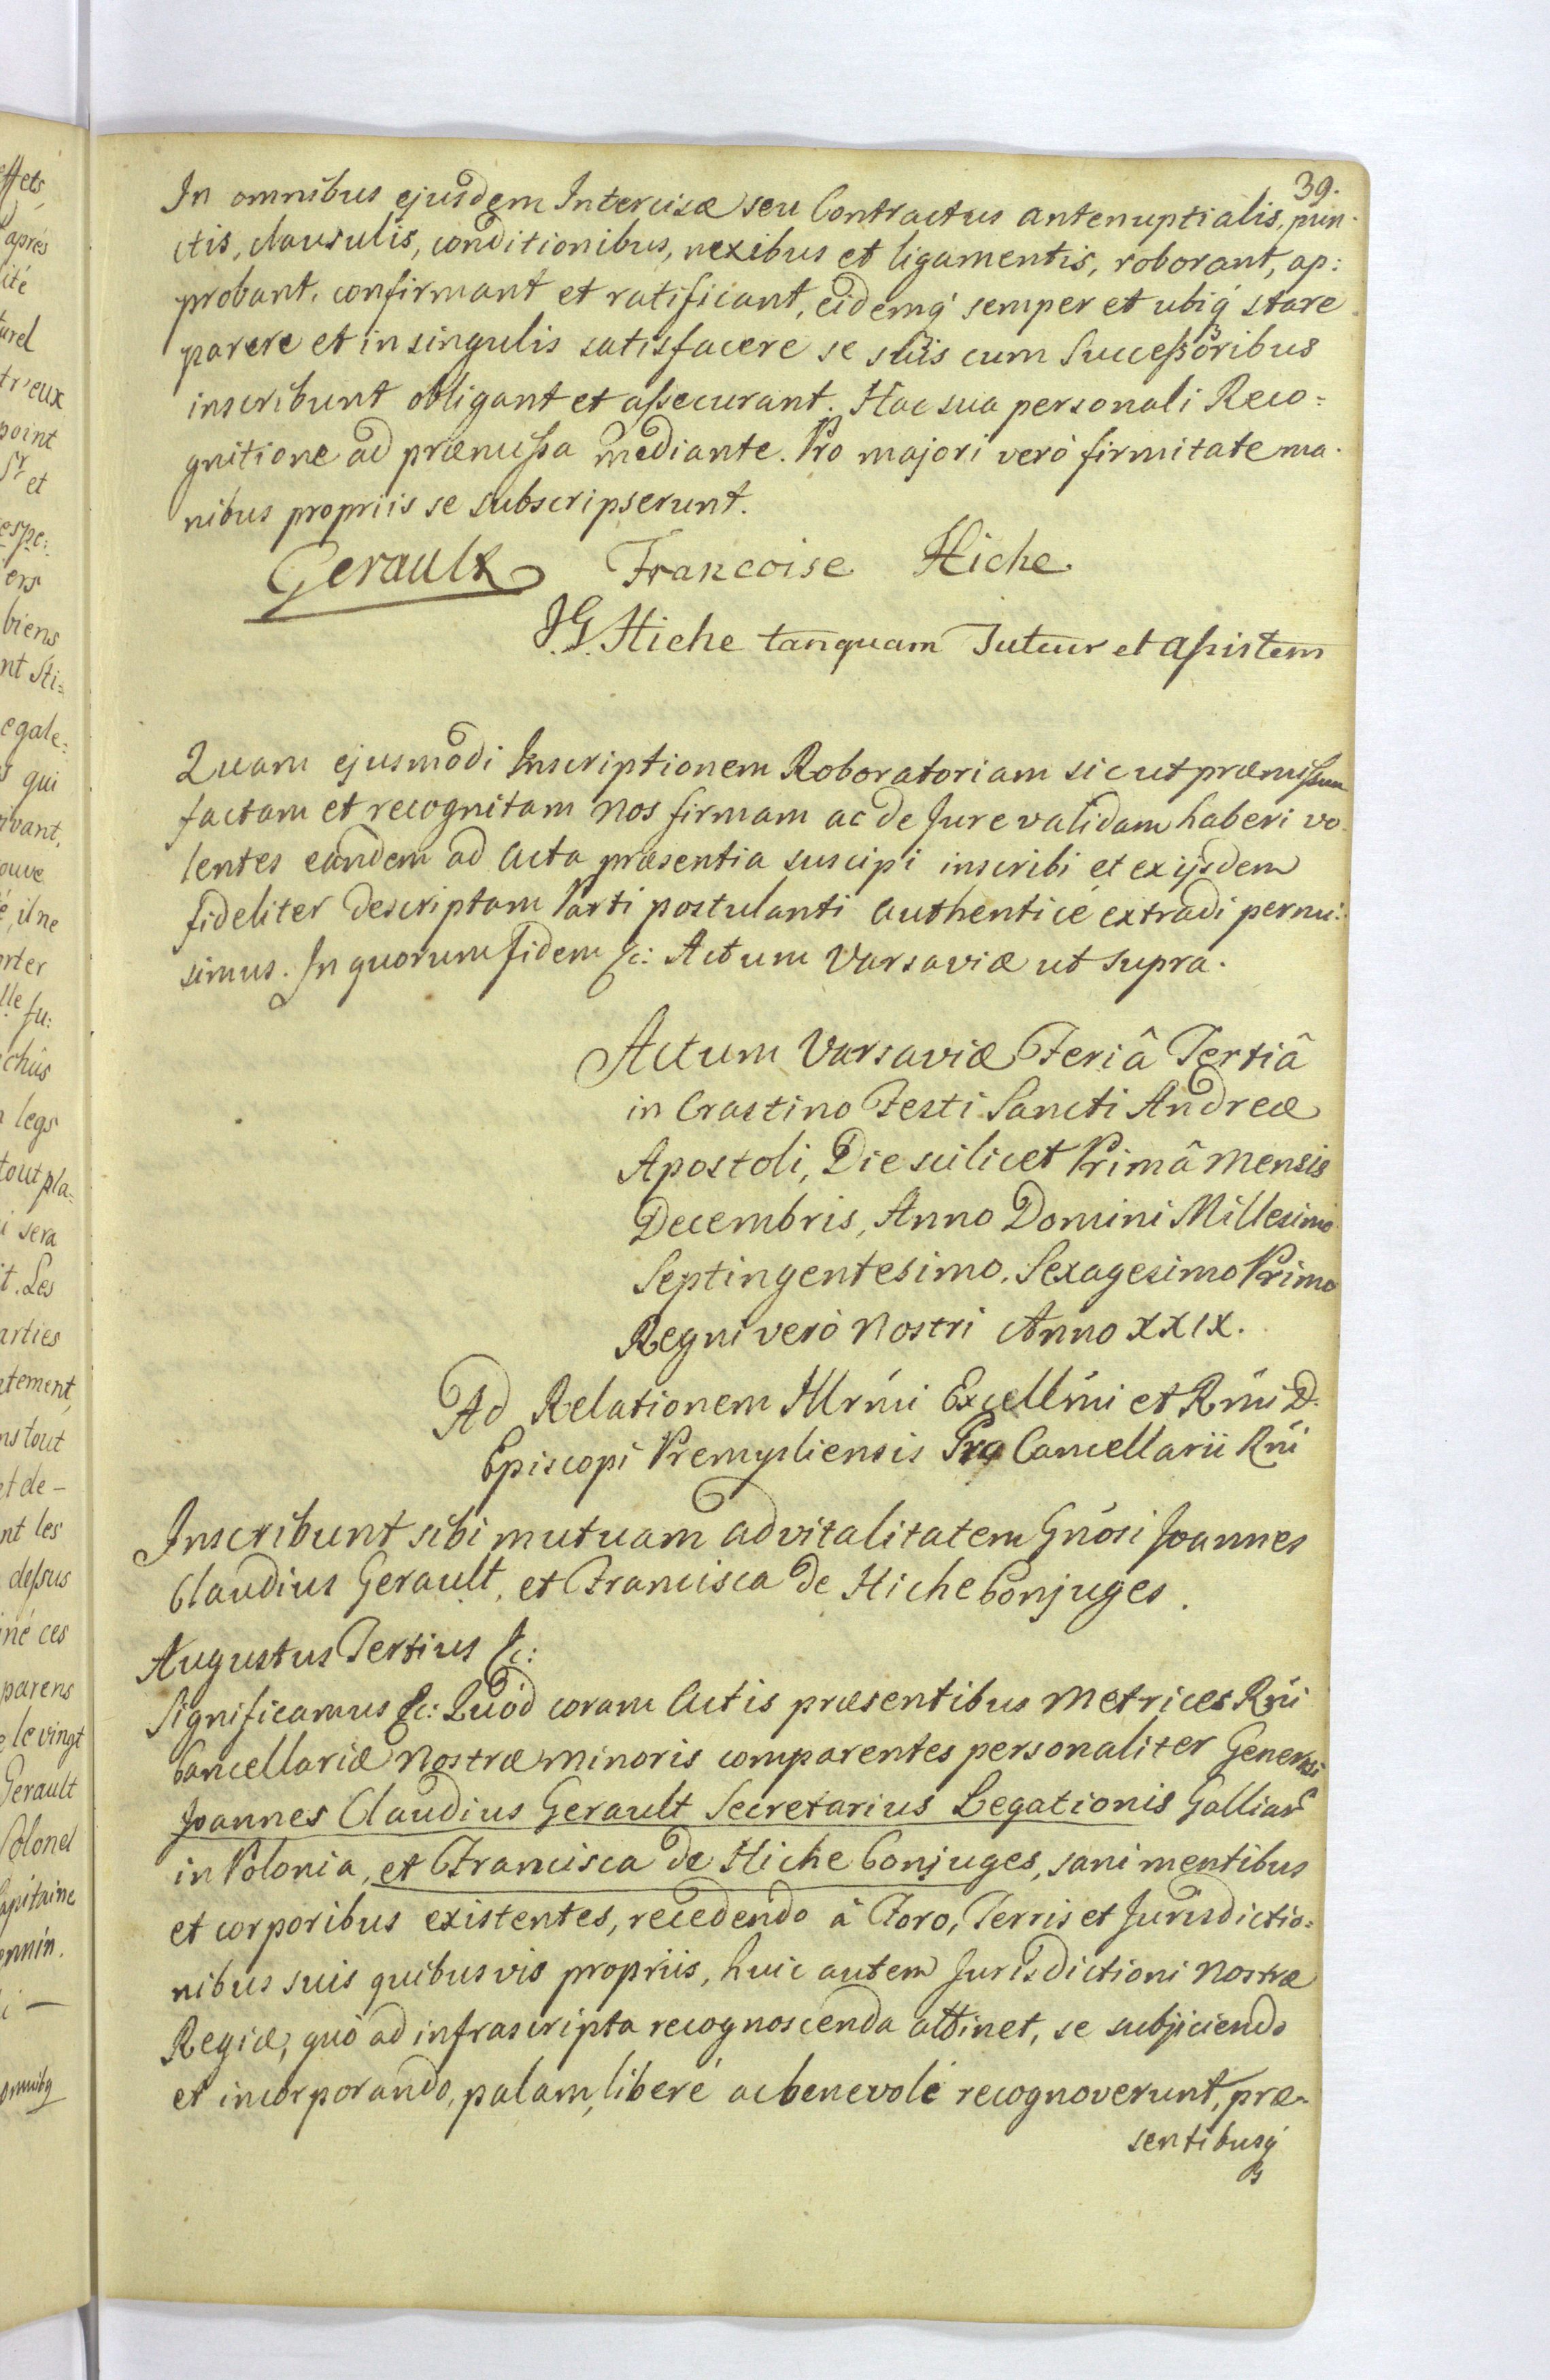 39.
In omnibus ejusdem Intercisæ seu Contractus antenuptialis, pun-
ctis, clausulis, conditionibus, nexibus et ligamentis, roborant, ap:
probant, confirmant et ratificant, eidemq́ semper et ubiq́ stare
parere et in singulis satisfacere se suis cum Succeſsoribus
inscribunt obligant et aſsecurant. Hac sua personali Reco=
gnitione ad præmiſsa mediante. Pro majori verò firmitate ma-
nibus propriis se subscripserunt.
Gerault Francoise Hiche
J.G. Hiche tanquam Tuteur et aſsistem
Quam ejusmodi Inscriptionem Roboratoriam sicut præmiſsum
factam et recognitam Nos firmam ac de Jure validam haberi vo-
lentes eandem ad Acta præsentia suscipi inscribi et ex ijsdem
fideliter descriptam Parti postulanti authenticè extradi permi:
simus. In quorum fidem &c: Actum Varsaviæ ut supra.
Actum Varsaviæ Feriâ Tertiâ
in Crastino Festi Sancti Andreæ
Apostoli, Die scilicet Primâ Mensis
Decembris, Anno Domini Millesimo
Septingentesimo, Sexagesimo Primo
Regni verò Nostri Anno XXIX.
Ad Relationem Illrmi Excellmi et Rmi D.
Episcopi Premysliensis Pro Cancellarii Rni
Inscribunt sibi mutuam advitalitatem Gnosi Joannes
Claudius Gerault, et Francisca de Hiche Conjuges.
Augustus Tertius &c:
Significamus &c: Quod coram Actis præsentibus Metrices Rni
Cancellariæ Nostræ minoris comparentes personaliter Generosi
Joannes Claudius Gerault Secretarius Legationis Galliar
in Polonia, et Francisca de Hiche Conjuges, sani mentibus
et corporibus existentes, recedendo à Foro, Terris et Jurisdictio=
nibus suis quibusvis propriis, huic autem Jurisdictioni Nostræ
Regiæ, quò ad infrascripta recognoscenda attinet, se subjiciendo
et incorporando, palam, liberè ac benevolè recognoverunt, præ-
sentibusq́